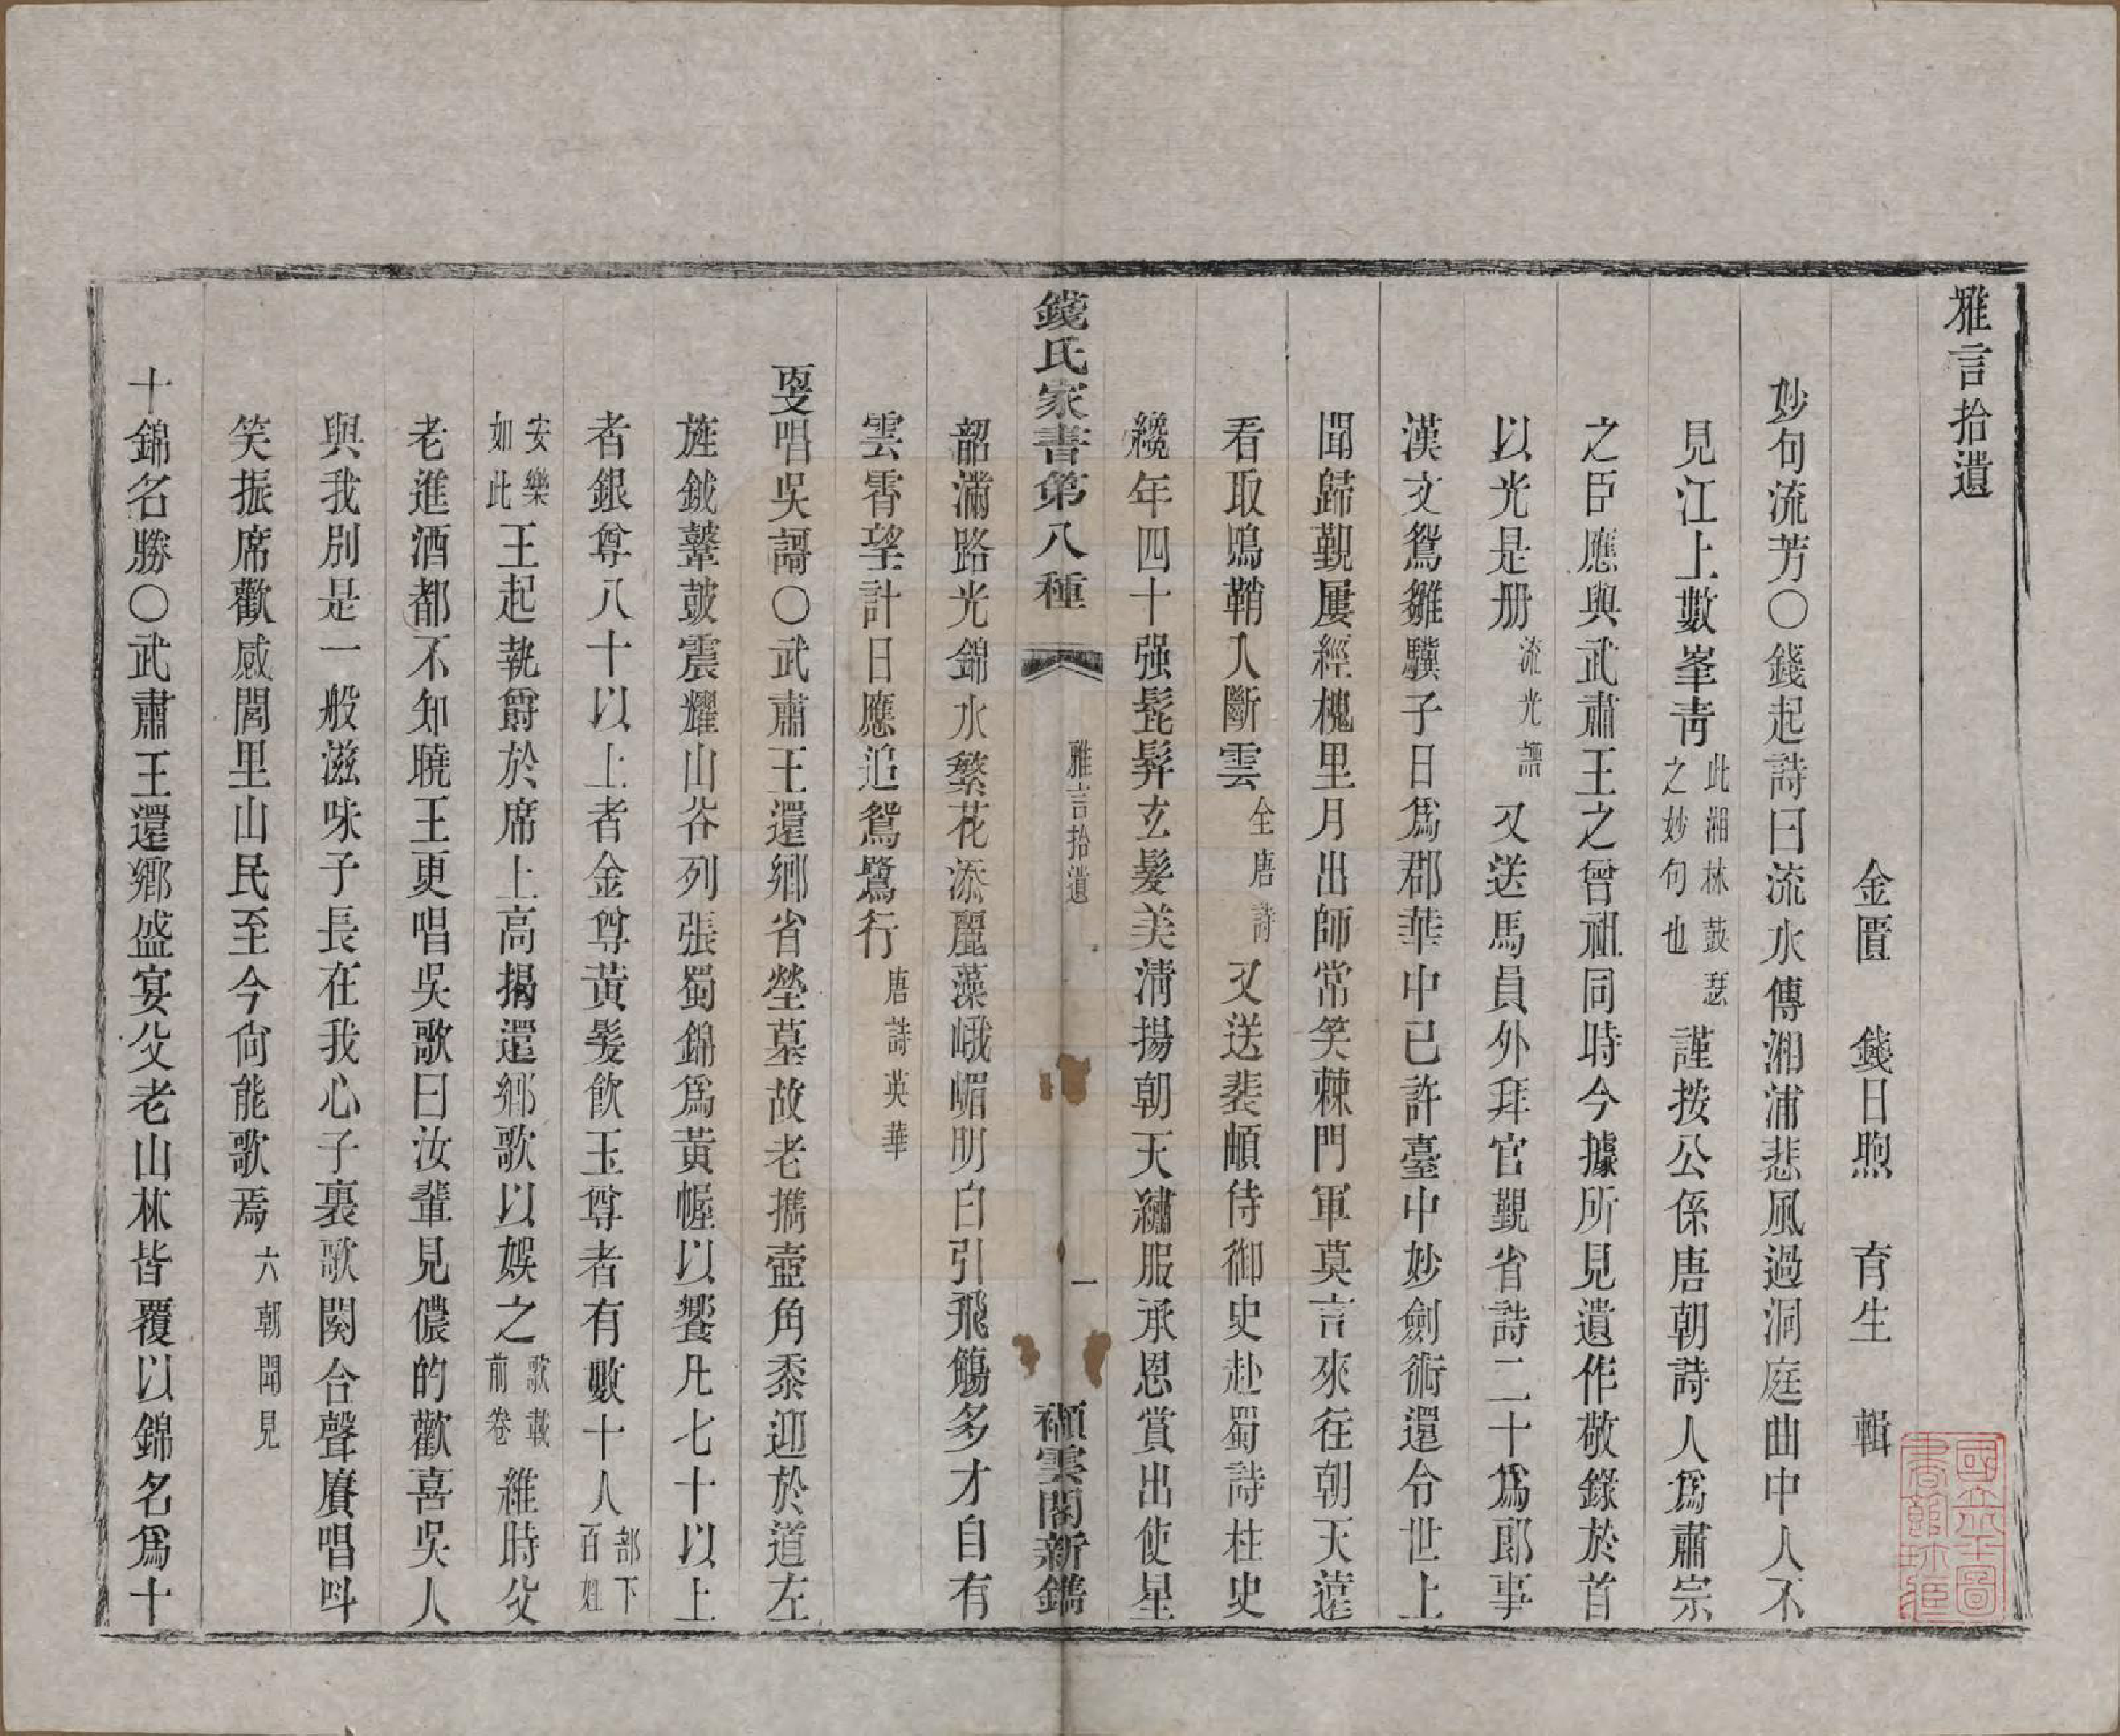 雅言拾遺
金匱　錢日煦　育生　輯
妙句流芳○錢起詩曰流水傳湘浦悲風過洞庭曲中人不
見江上數峯靑此湘林鼓瑟之妙句也謹按公係唐朝詩人爲肅宗
之臣應與武肅王之曾祖同時今據所見遺作敬錄於首
以光是册流光譜又送馬員外拜官覲省詩二十爲郎事
漢文鴛雛驥子日爲郡華中已許臺中妙劍術還令世上
聞歸覲屢經槐里月出師常笑棘門軍莫言來往朝天遠
看取鳴鞘入斷雲全唐詩又送裴頔侍御史赴蜀詩柱史
纔年四十强髭髯玄髮美淸揚朝天繡服承恩賞出使星
韶滿路光錦水繁花添麗藻峨嵋明白引飛觴多才自有
雲霄望計日應追鴛鷺行唐詩英華
錢氏家書第八種
雅言拾遺
一
雲閣新鐫
叟唱吳謌○武肅王還鄉省塋墓故老擕壺角黍迎於道左
旌鉞鼙鼓震耀山谷列張蜀錦爲黃幄以饗凡七十以上
者銀尊八十以上者金尊黃髮飮玉尊者有數十人部下百姓
安樂如此王起執爵於席上高揭還鄉歌以娛之歌載前卷維時父
老進酒都不知曉王更唱吳歌曰汝輩見儂的歡喜吳人
與我別是一般滋味子長在我心子裏歌闋合聲賡唱呌
笑振席歡感閭里山民至今尙能歌焉六朝聞見
十錦名勝○武肅王還鄉盛宴父老山林皆覆以錦名爲十
國立北平圖書館珍藏